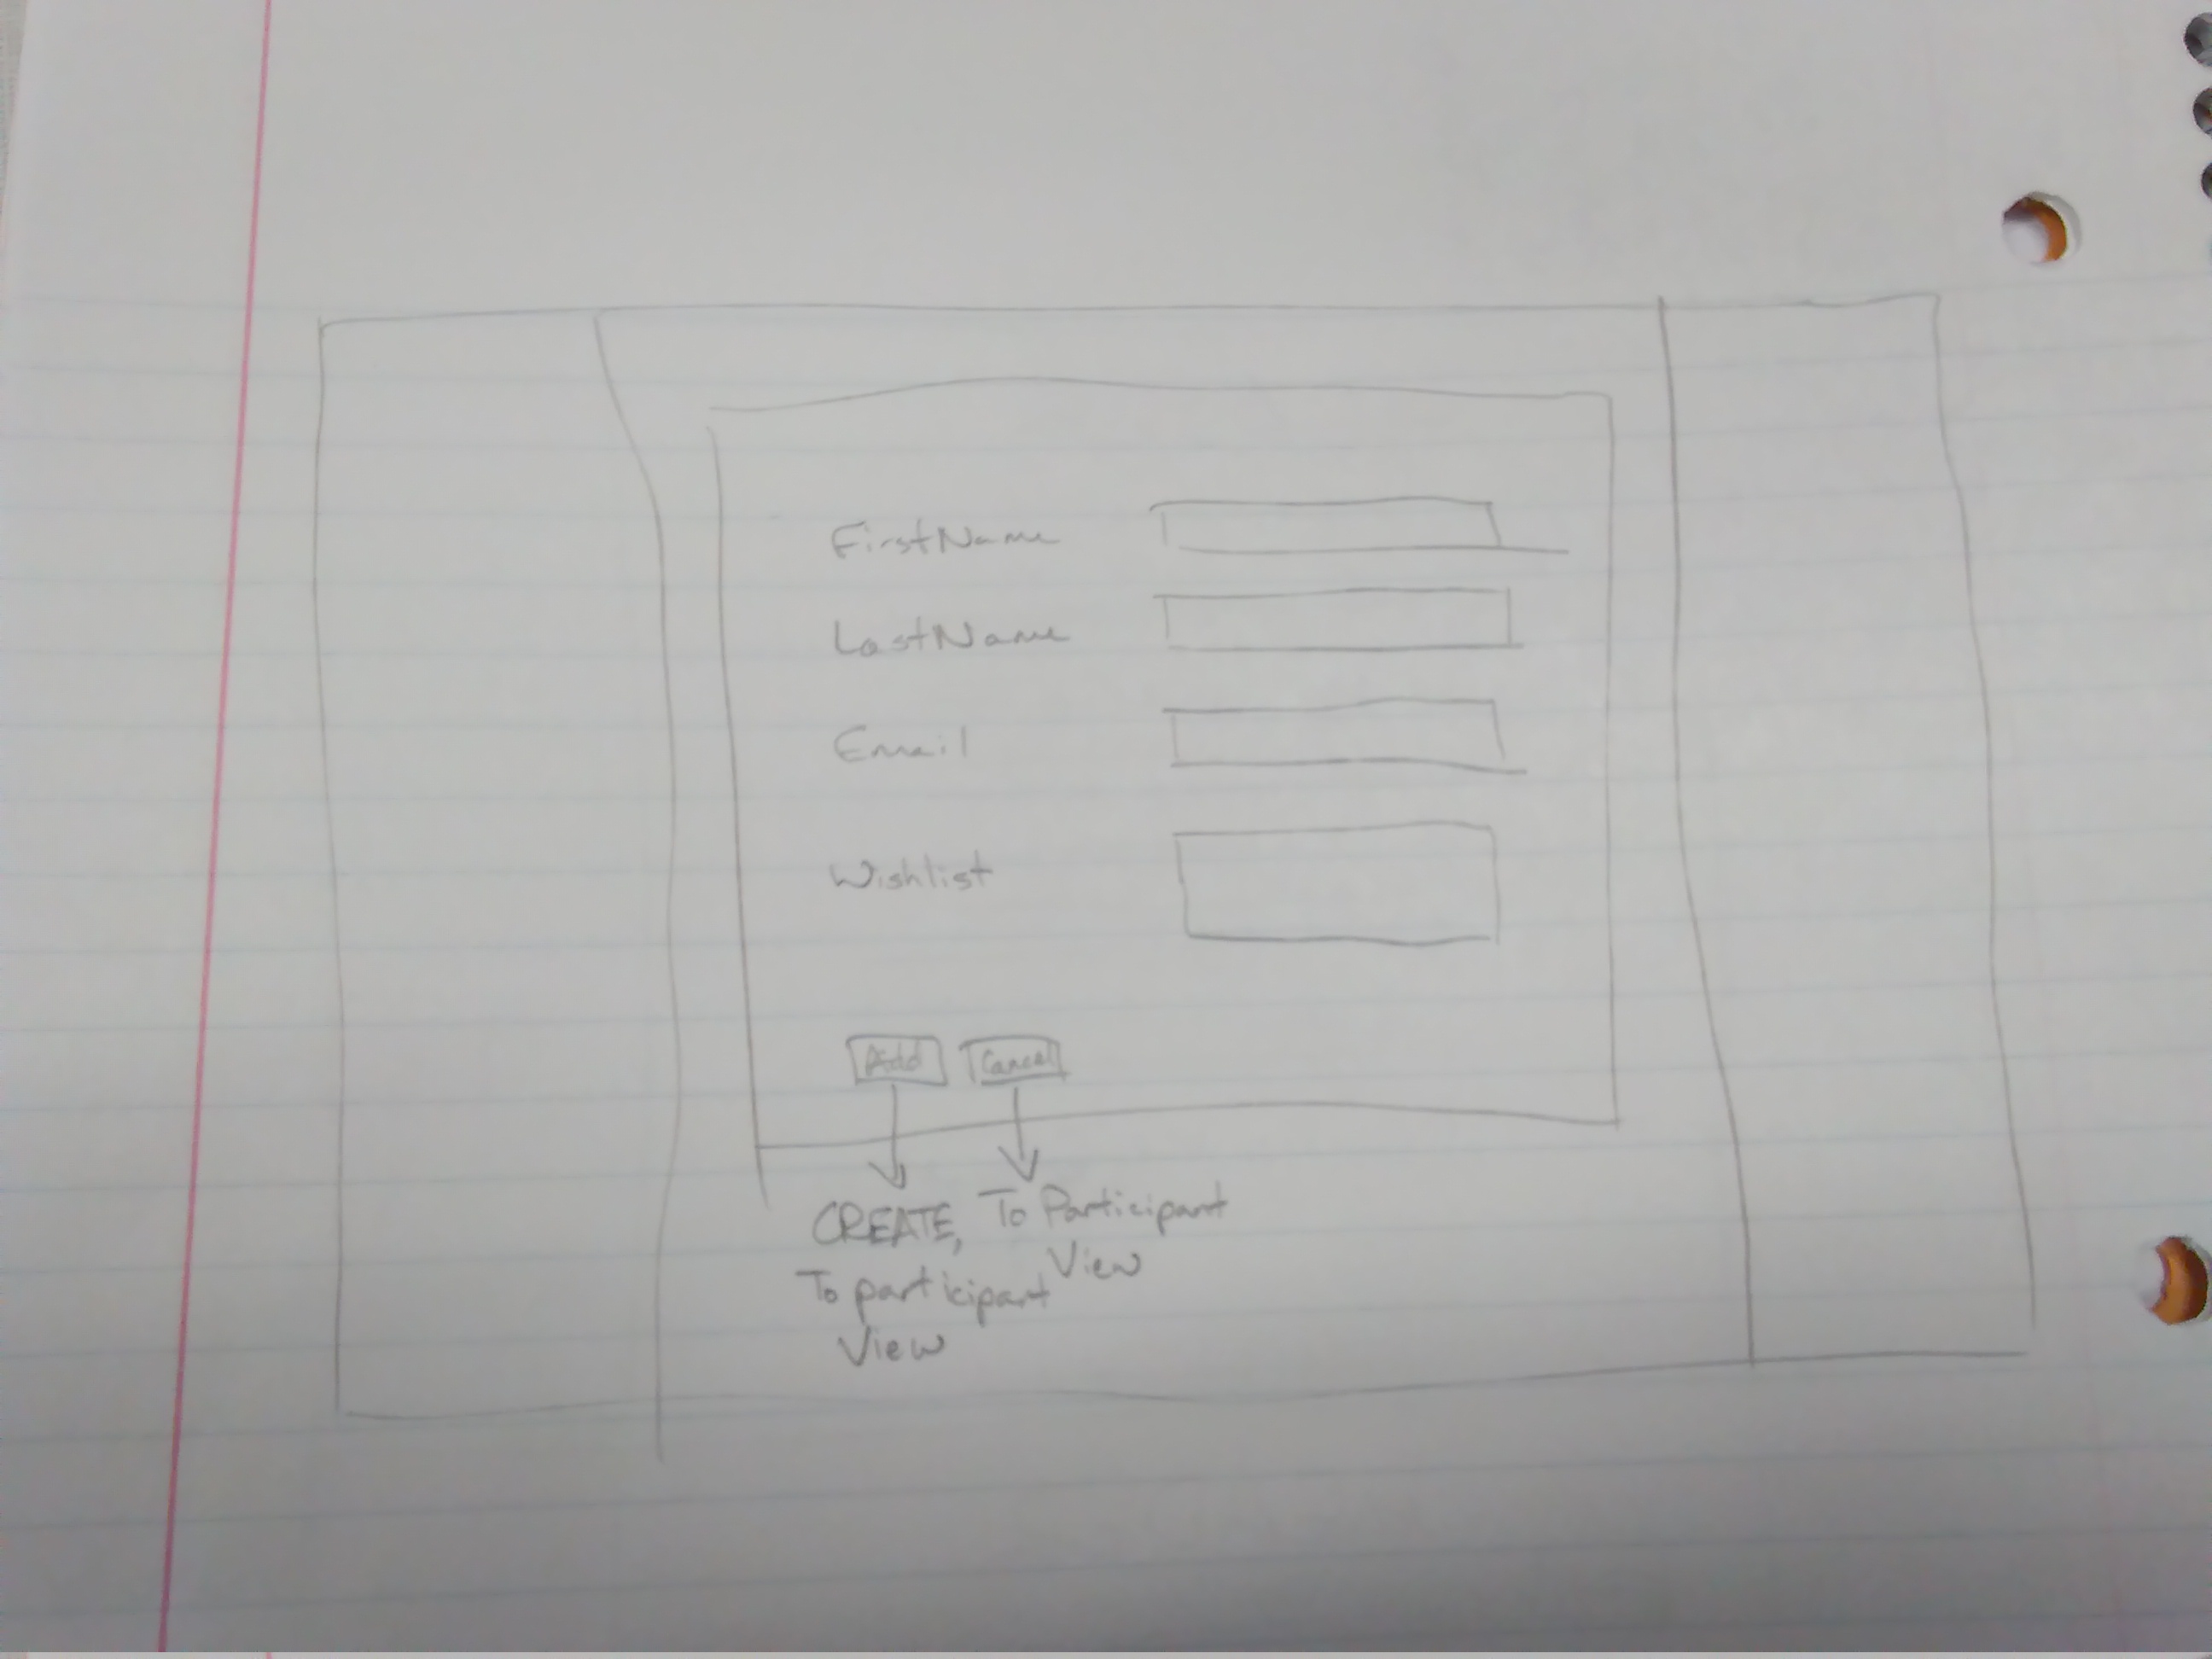 FirstName
LastName
Email
Wishlist
Add
Cancel
CREATE,
To participant
View
To Participant
View